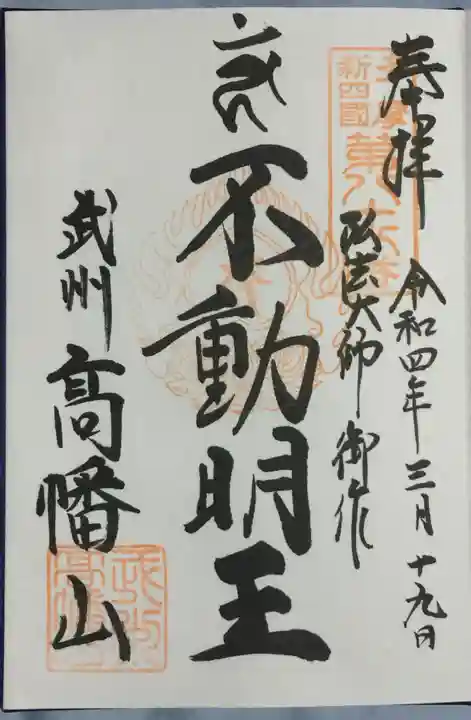 奉拝
令和四年三月十九日
弘法大師御作
不動明王
武州
高幡山
新四國